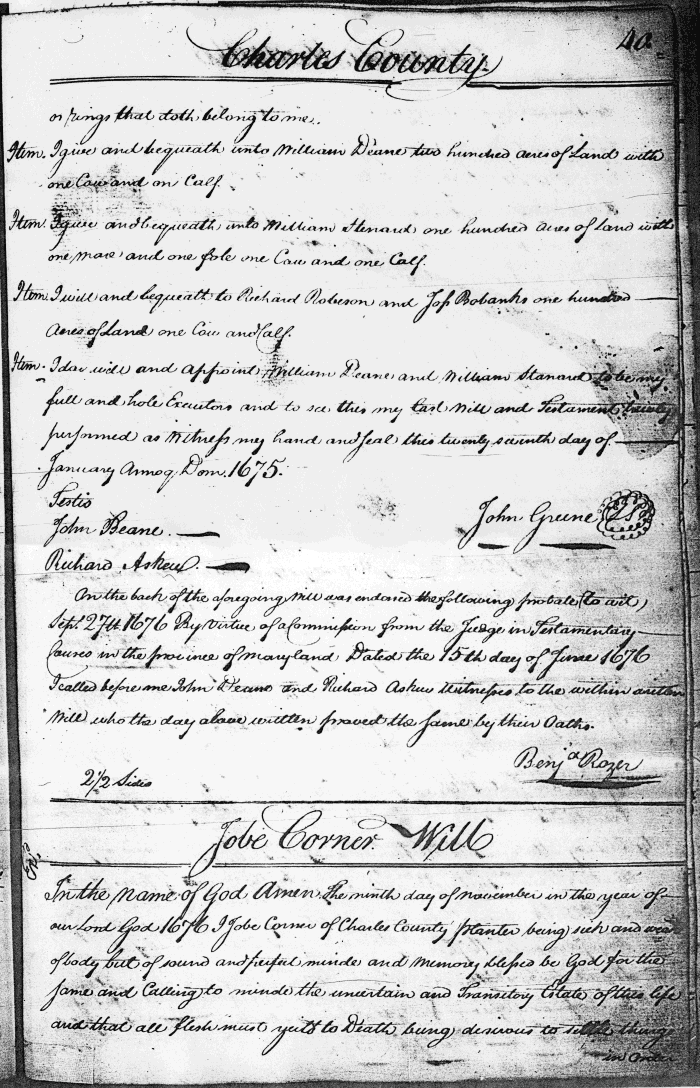 40.
Charles County.
or rings that doth belong to me.
Item. I give and bequeath unto William Deane two hundred acres of Land with
one Cow and on Calf.
Item. I give and bequeath unto William Stenard one hundred acres of Land with
one mare and one fole one Cow and one Calf.
Item I will and bequeath to Richard Robeson and Jos. Bobanks one hundred
Acres of Land one Cow and Calf.
Item. I doe will and appoint William Deane and William Stanard to be my
full and hole Executors and to see this my last Will and Testament
performed as Witness my hand and seal this twenty seventh day of
January Annoq. Dom. 1675.
Testis
John Greene LS
John Beane.
Richard Askew.
On the back of the aforegoing Will was endorsed the following probate (to wit)
Sept. 27th 1676 By Virtue of a Commission from the Judge in Testamentary
Causes in the province of Maryland Dated the 15th day of June 1676
I called before me John Deane and Richard Askew Witnesses to the within written
Will who the day above written proved the same by their Oaths.
Benja Rozer
2 1/2 Sides
Jobe Corner Will
In the Name of God Amen. The ninth day of November in the year of
our Lord God 1676 I Jobe Corner of Charles County planter being sick and weak
of body but of sound and perfect minde and Memory blessed be God for the
same and Calling to minde the uncertain and Transitory Estate of this life
and that all flesh must yeild to Death being desirous to settle things
in order